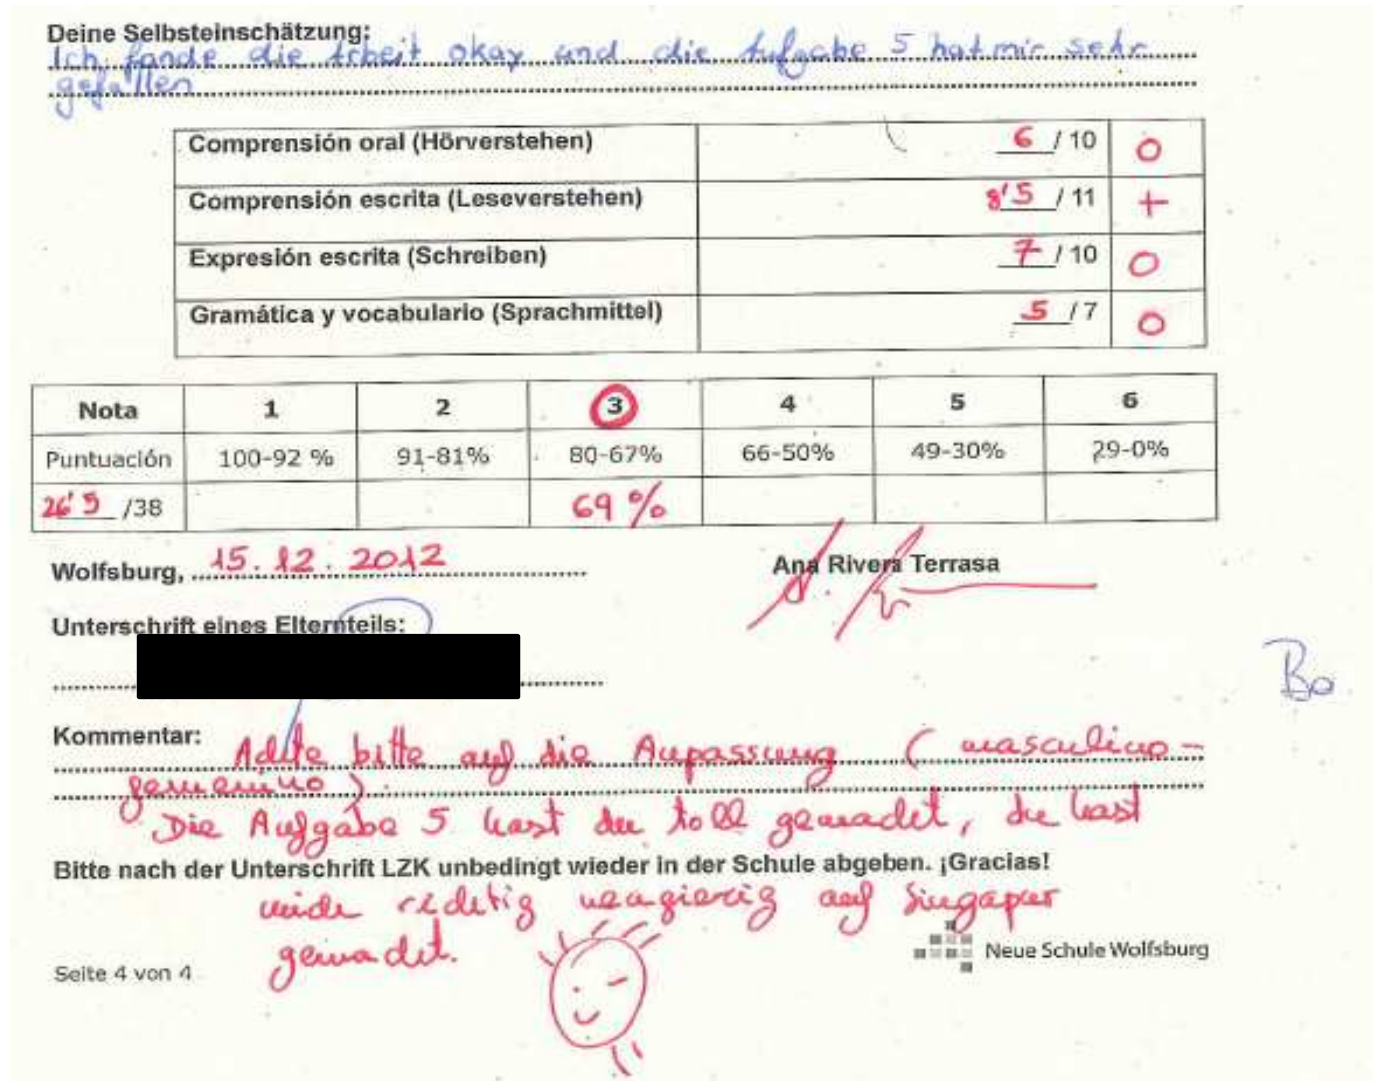 Deine Selbsteinschätzung:
Ich fande die Arbeit okay und die Aufgabe 5 hat mir sehr
gefallen
Comprensión oral (Hörverstehen) 6 / 10 O
Comprensión escrita (Leseverstehen) 8'5 / 11 +
Expresión escrita (Schreiben) 7 / 10 O
Gramática y vocabulario (Sprachmittel) 5 / 7 O
Nota 1 2 3 4 5 6
Puntuación 100-92 % 91-81% 80-67% 66-50% 49-30% 29-0%
26'5 /38 69 %
Wolfsburg, 15.12.2012 Ana Rivera Terrasa
Unterschrift eines Elternteils:
Bo
Kommentar: Achte bitte auf die Anpassung (masculino-
femenino).
Die Aufgabe 5 hast du toll gemacht, du hast
Bitte nach der Unterschrift LZK unbedingt wieder in der Schule abgeben. ¡Gracias!
mich richtig neugierig auf Singapur
gemacht.
Neue Schule Wolfsburg
Seite 4 von 4